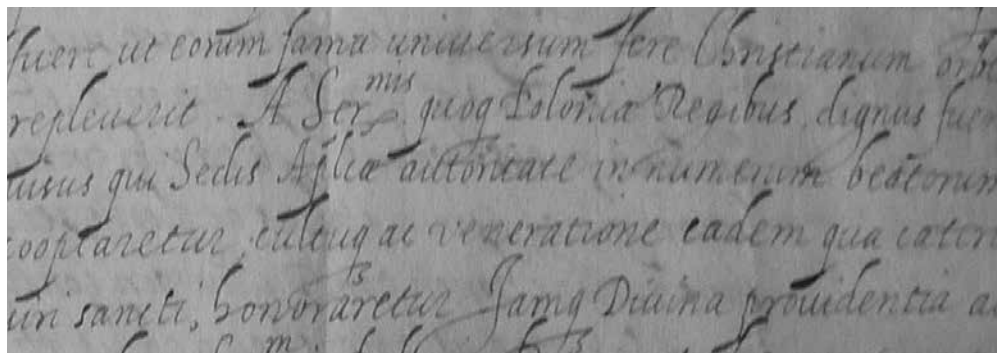 fuere ut eorum fama universum fere Christianum orbe
repleverit. A Ser^mis quoq Poloniæ Regibus dignus fuer
uisus qui Sedis Aplicæ auttoritate in numerum beatorum
cooptaretur, cultuq ac veneratione eadem qua cateri
uiri sancti, honoraretur Jamq Diuina prouidentia a